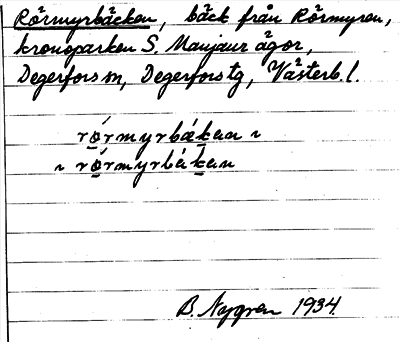 Rörmyrbäcken, bäck från Rörmyren,
kronoparken S. Manjaur ägor,
Degerfors sn, Degerfors tg, Västerb. l.
rǫ́rmyrbák̲an ~
~ rǫ́rmyrbák̲an
B. Nygren 1934.